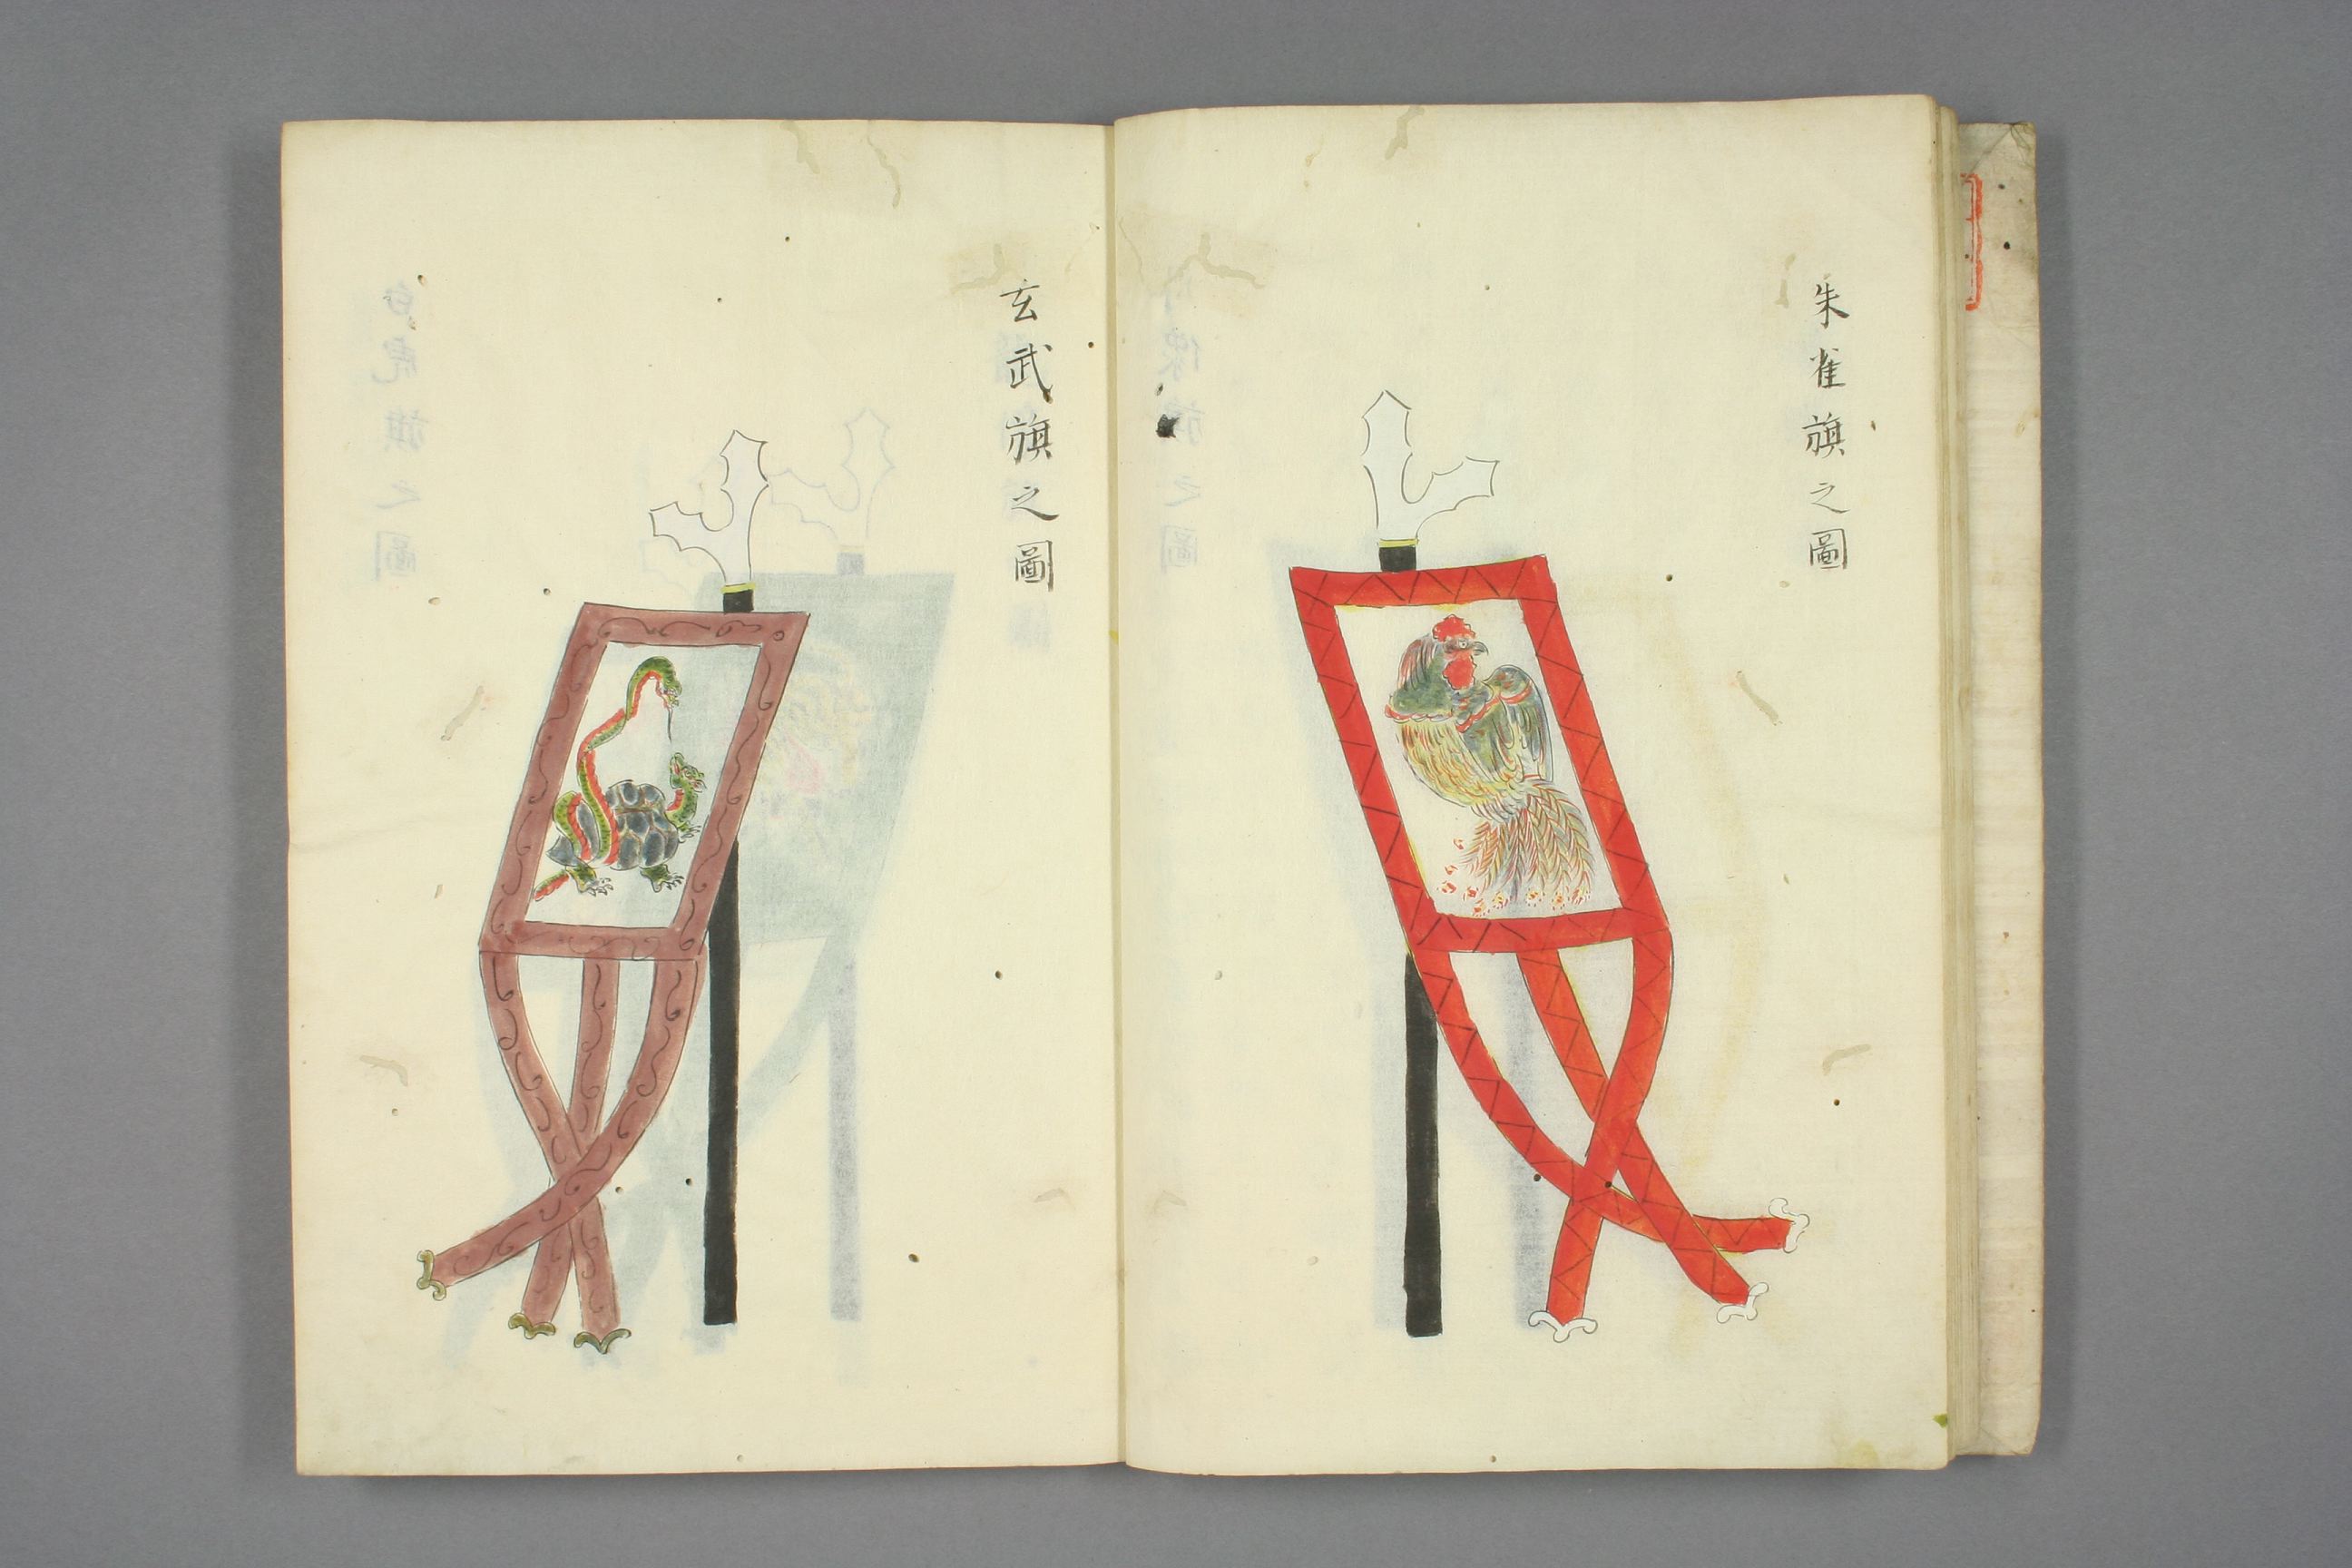 朱雀旗之圖
玄武旗之圖